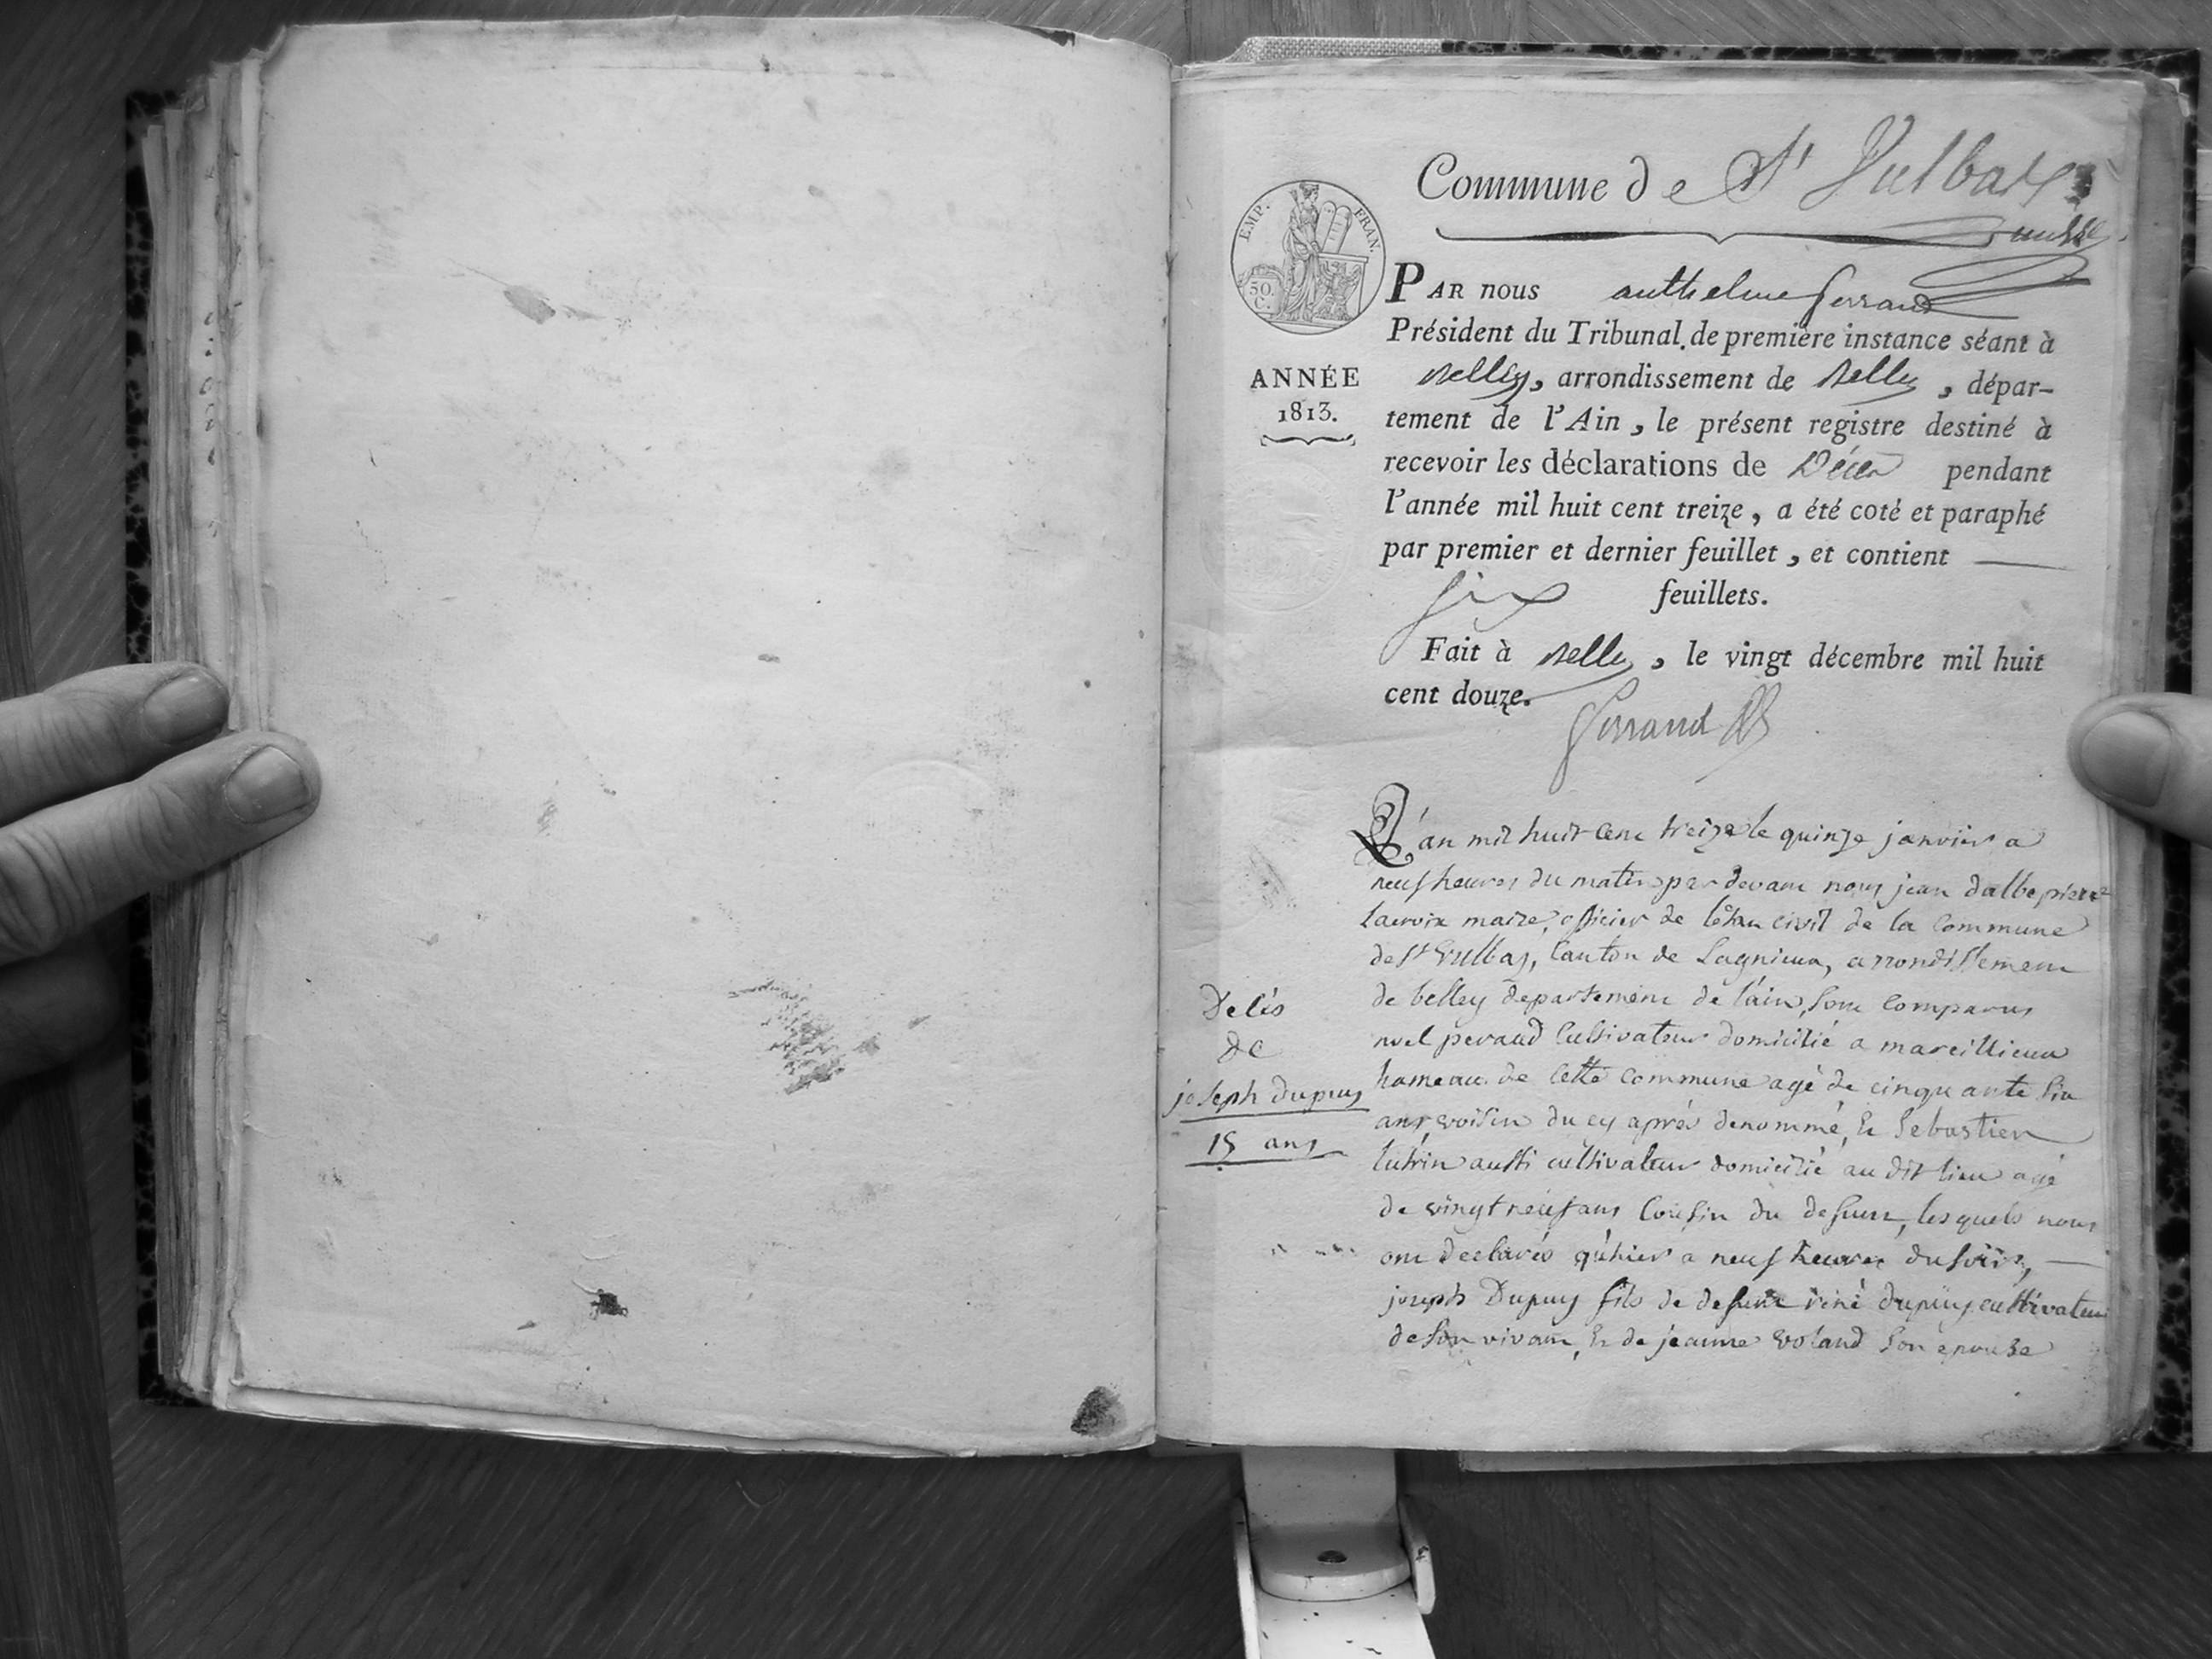 Commune de St Vulbas
EMP. FRAN.
50.
C.
PAR nous anthelme ferrand
Président du Tribunal de première instance séant à
ANNÉE
1813.
Belley, arrondissement de Belley, dépar-
tement de l'Ain, le présent registre destiné à
recevoir les déclarations de Décès pendant
l'année mil huit cent treize, a été coté et paraphé
par premier et dernier feuillet, et contient —
six feuillets.
Fait à Belley, le vingt décembre mil huit
cent douze.
ferrand
L'an mil huit cent treize le quinze janvier a
neuf heures du matin par devant nous jean dalbepierre
lacroix maire, officier de l'état civil de la commune
de St Vulbas, canton de Lagnieux, arrondissement
de belley departement de l'ain, sont comparus
noel peraud cultivateur domicilié a marcillieux
hameau de cette commune agé de cinquante six
ans, voisin du cy après denommé, et Sebastien
lutrin aussi cultivateur domicilié au dit lieu agé
de vingt neuf ans cousin du defunt, lesquels nous
ont declarés qu'hier a neuf heures du soir, —
joseph Dupuy fils de defunt réné dupuy cultivateur
de son vivant, et de jeanne voland son epouse
Delés
de
joseph dupuy
15 ans